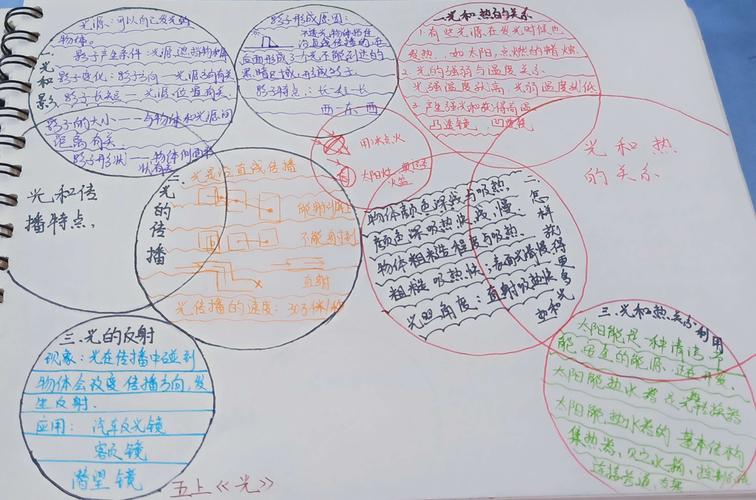 光源：可以自己发光的
物体。
影子产生条件：光源、遮挡物和屏
影子变化：影子方向——光源方向有关
影子长短——光源位置有关
影子的大小——与物体和光源间
距离有关
影子形状——物体侧面形
状有关
一、光和影
影子形成原因：
后面形成了个光不能到达的
黑暗区域，形成影子
影子特点：长—短—长
西—东—西
一光和热的关系
1.有些光源，在发光时候也
发热，如太阳，点燃的蜡烛
2.光的强弱与温度关系
光强温度就高，光弱温度就低
3.产生强光和获得高温
凸透镜，凹透镜
用冰点火
太阳灶
光和热
的关系
光和传
播特点.
光的传播
光是沿直线传播
能射到屏上
不能射到
直射
光传播的速度：30万千米/秒
物体颜色深浅与吸热.
颜色深吸热快浅.慢.
物体粗糙程度与吸热.
粗糙 吸热快，表面光滑慢
光照角度：直射吸热快
二怎样
得更多
光和热
三.光的反射
现象：光在传播中碰到
物体会改变传播方向,发
生反射.
应用：汽车反光镜
客反镜
潜望镜
三.光和热关与利用
太阳能是一种清洁节
能、安全的能源，正在开发
太阳能热水器是光热转换器
太阳能热水器的基本结构
集热器、贝宁水箱、控制系统
连接管道、支架
五上《光》